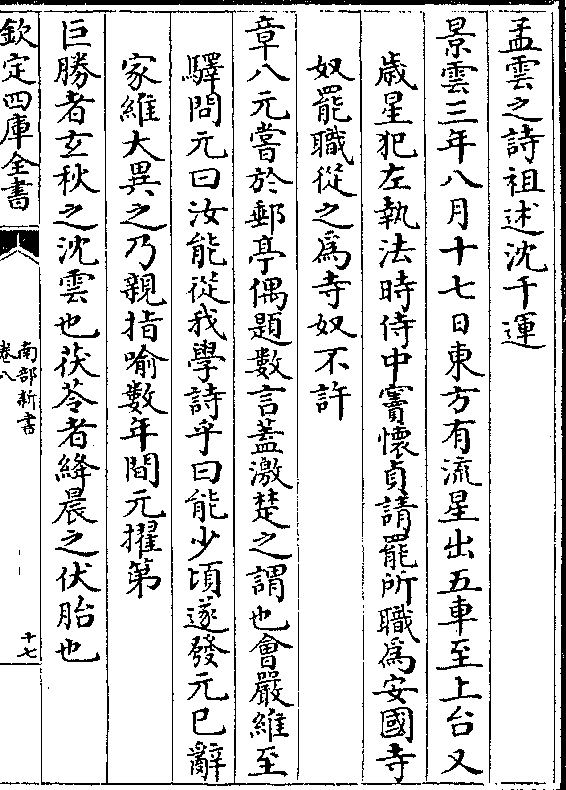 孟雲之詩祖述沈千運
景雲三年八月十七日東方有流星出五車至上台又
歲星犯左執法時侍中竇懷貞請罷所職爲安國寺
奴罷職從之爲寺奴不許
章八元嘗於郵亭偶題數言蓋激楚之謂也會嚴維至
驛問元曰汝能從我學詩乎曰能少頃遂發元已辭
家維大異之乃親指喻數年間元擢第
巨勝者玄秋之沈雲也茯苓者絳晨之伏胎也
欽定四庫全書
南部新書
卷八
十七